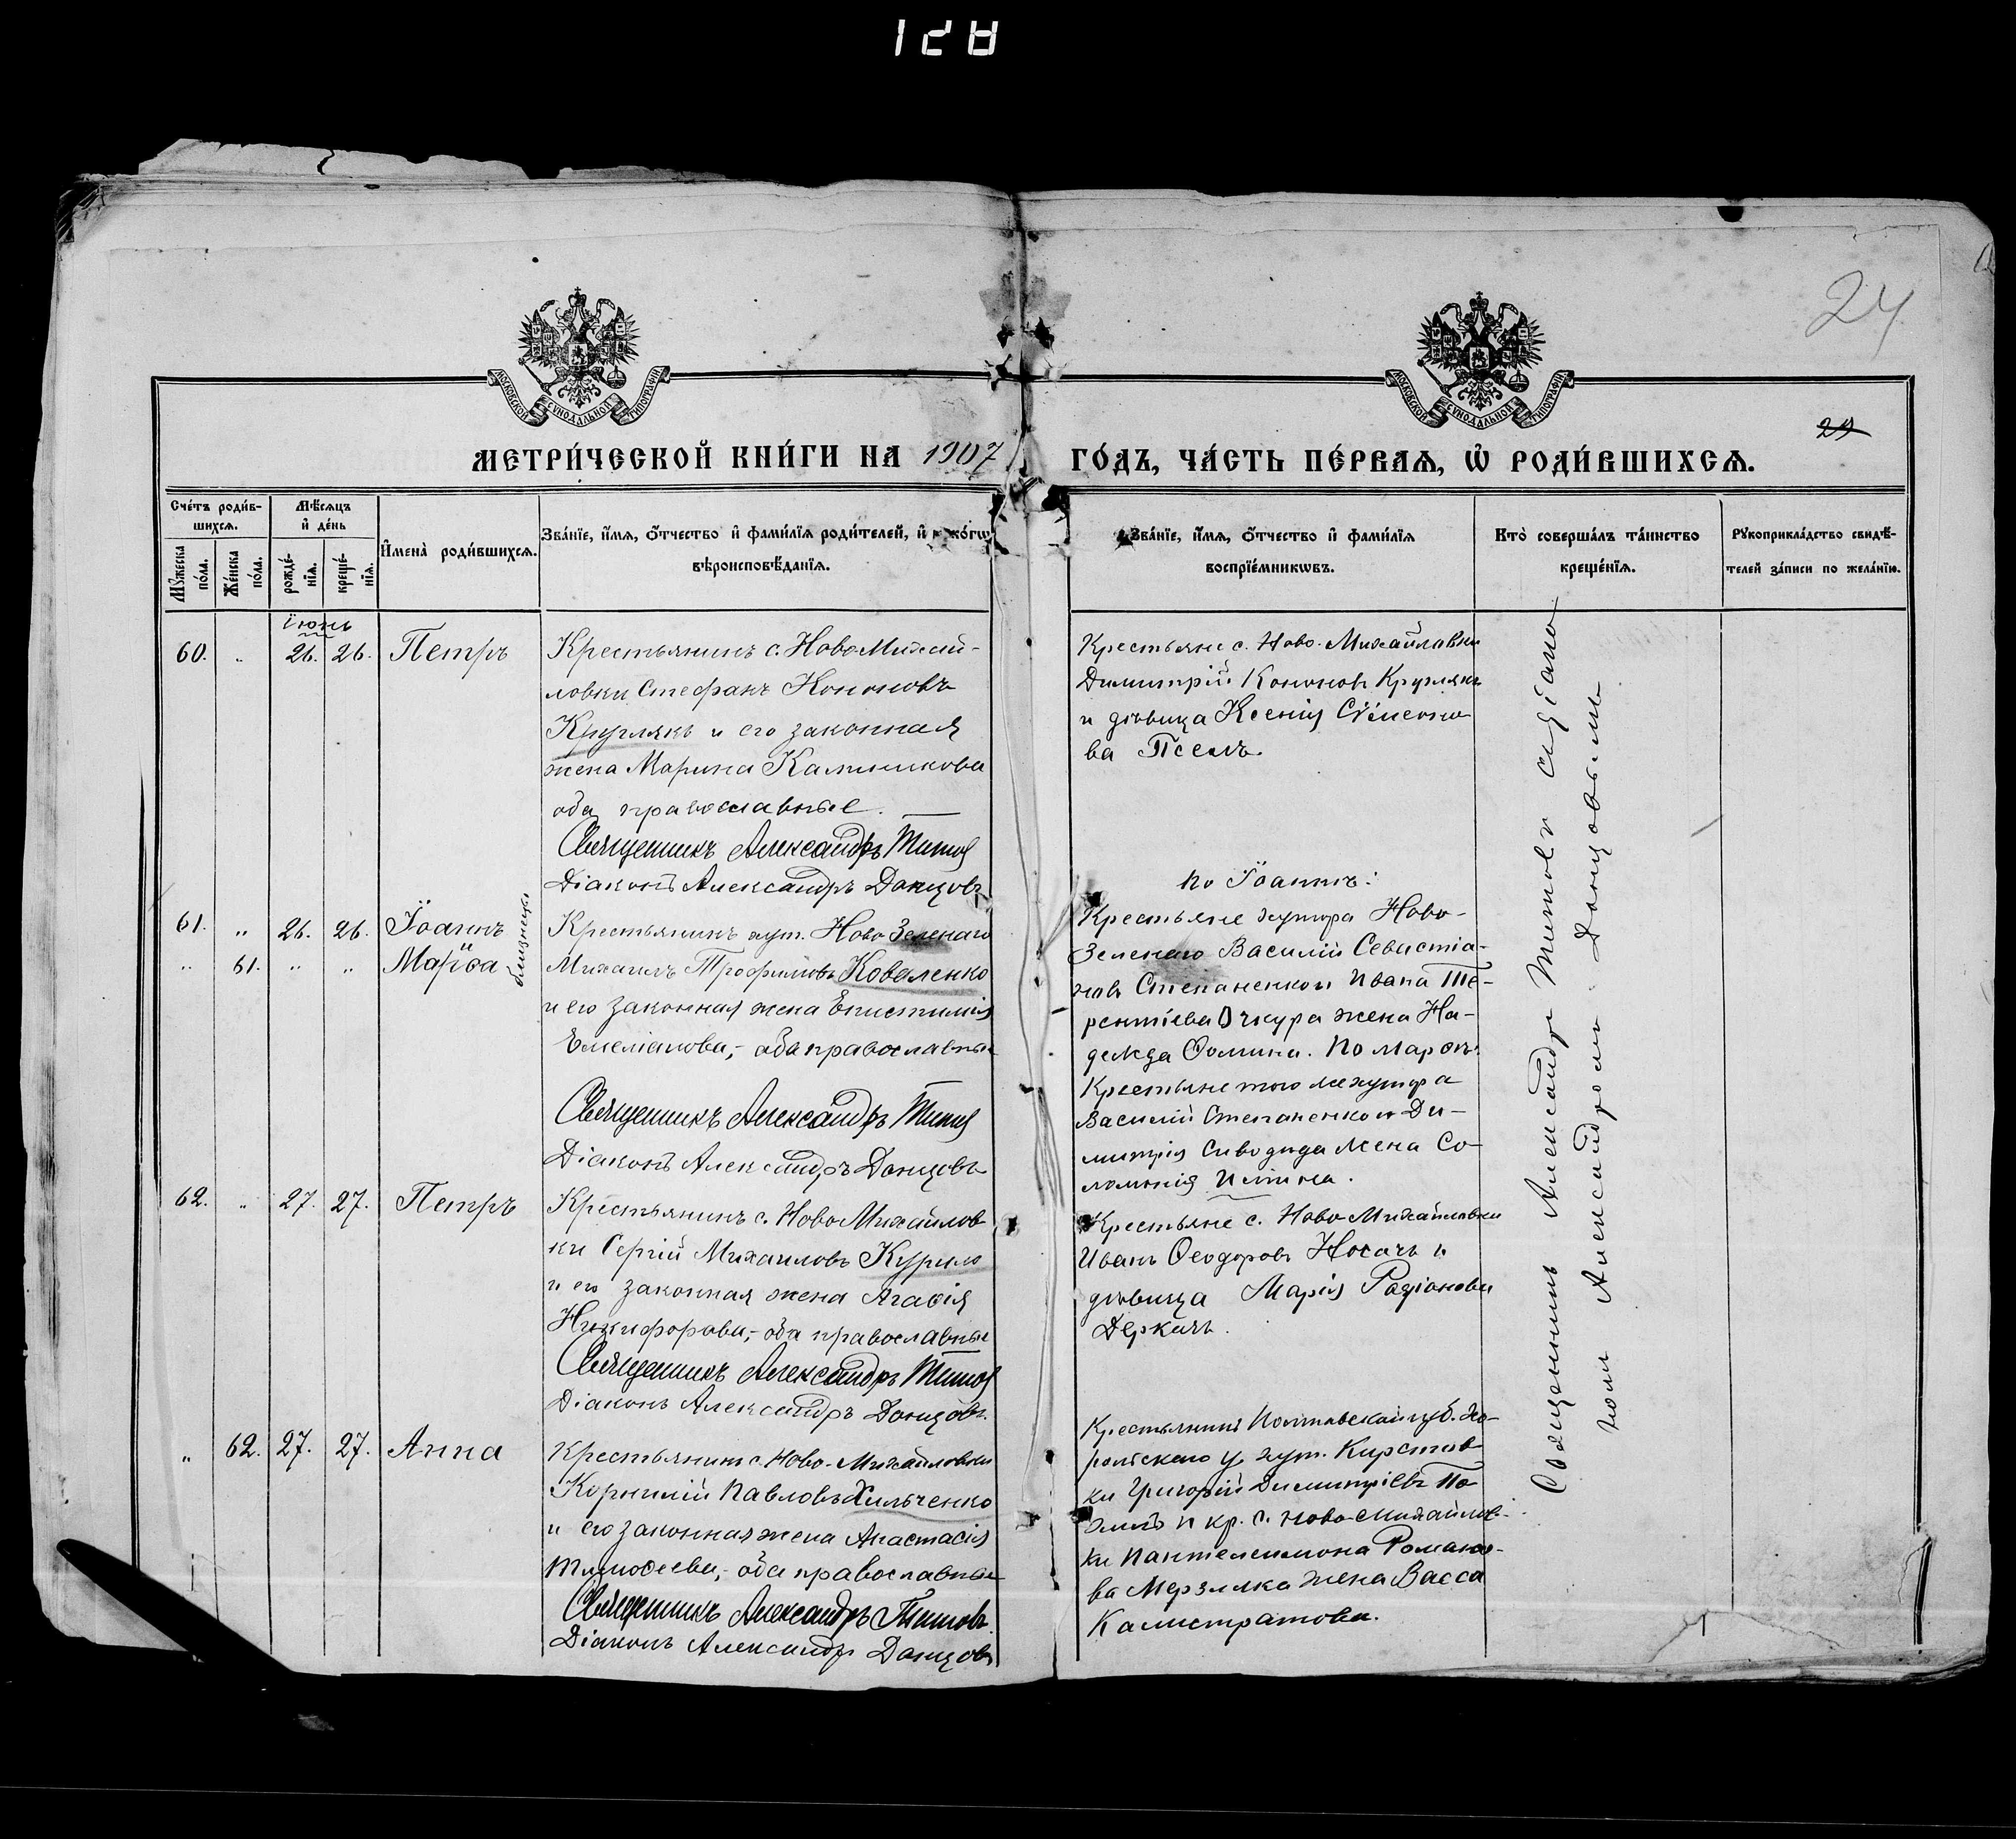 128
24
29
МОСКОВСКОЙ СѴНОДАЛЬНОЙ ТИПОГРАФІИ
МОСКОВСКОЙ СѴНОДАЛЬНОЙ ТИПОГРАФІИ
МЕТРИ́ЧЕСКОЙ КНИ́ГИ НА 1907 ГО́ДЪ, ЧА́СТЬ ПЕ́РВАѦ, Ѡ҆ РОДИ́ВШИХСѦ.
Сче́тъ роди́в-
шихсѧ.
Мѣ́сѧцъ
и҆ де́нь
Мꙋ́жеска
по́ла.
Же́нска
по́ла.
рожде́-
нїѧ.
креще́-
нїѧ.
И҆мена̀ роди́вшихсѧ.
Зва́нїе, и҆́мѧ, ѻ҆́тчество и҆ фами́лїѧ роди́телей, и҆ ко́гѡ
вѣроисповѣ́данїѧ.
Зва́нїе, и҆́мѧ, ѻ҆́тчество и҆ фами́лїѧ
воспрїе́мникѡвъ.
Кто̀ соверша́лъ та́инство
креще́нїѧ.
Рꙋкоприкла́дство свидѣ́-
телей за́писи по жела́нїю.
Іюнь
60. „ 26. 26. Петръ
Крестьянинъ с. НовоМихай-
ловки Стефанъ Кононовъ
Кругликъ и его законная
жена Марина Калиникова
оба православные.
Священникъ Александръ Титов
Діаконъ Александръ Донцовъ
Крестьяне с. Ново-Михайловки
Димитрій Кононовъ Кругликъ
и дѣвица Ксенія Сѵмеоно
ва Пселъ.
61. „ 26. 26. Іоаннъ
„ 61. „ „ Марѳа
близнецы
Крестьянинъ хут. НовоЗеленаго
Михаилъ Трофимовъ Коваленко
и его законная жена Епистимія
Емеліанова,- оба православные
Священникъ Александръ Титов
Діаконъ Александръ Донцовъ
по Іоаннѣ:
Крестьяне хутора Ново-
Зеленаго Василій Севастіа-
новъ Степаненко и Ивана Те-
рентіева Очкура жена На-
дежда Ѳомина. По Марѳѣ:
Крестьяне того же хутора
Василій Степаненко и Ди-
митрія Сиводида жена Со-
ломонія Ильина.
62. „ 27. 27. Петръ
Крестьянинъ с. НовоМихайлов
ки Сергій Михаиловъ Курило
и его законная жена Агаѳія
Никифорова,- оба православные
Священникъ Александръ Титов
Діаконъ Александръ Донцовъ.
Крестьяне с. НовоМихайловки
Иванъ Ѳеодоровъ Носачъ и
дѣвица Марія Родіонова
Деркачъ.
„ 62. 27. 27. Анна
Крестьянинъ с. Ново-Михайловки
Корнилій Павловъ Хильченко
и его законная жена Анастасія
Тимоѳеева,- оба православные
Священникъ Александръ Титовъ.
Діаконъ Александръ Донцовъ
Крестьянинъ Полтавской губ. Хо-
рольскаго у. хут.
ки Григорій Димитріевъ
и кр. с. Ново-Михайлов-
ки Пантелеимона Романо-
ва Мерзлика жена Васса
Калистратова.
Священникъ Александръ Титовъ съ діако
номъ Александромъ Донцовымъ